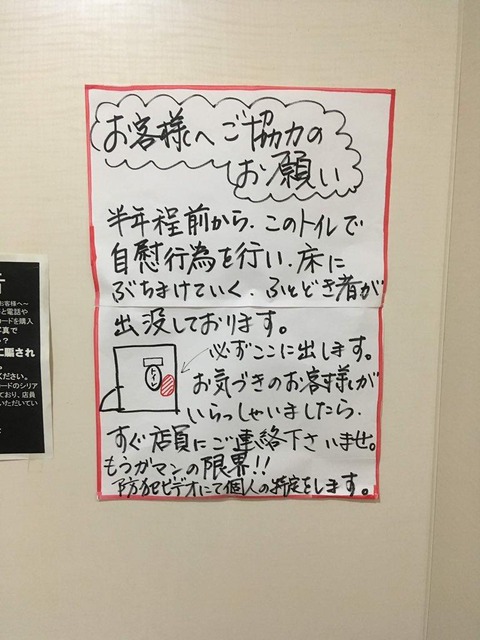 お客様へご協力の
お願い
半年程前から、このトイレで
自慰行為を行い、床に
ぶちまけていく、ふとどき者が
出没しております。
必ずここに出します。
トイレ
お気づきのお客様が
いらっしゃいましたら、
すぐ店員にご連絡下さいませ。
もうガマンの限界!!
防犯ビデオにて個人の特定をします。
お客様へ〜
と電話や
カードを購入
写真で
?
に騙され
ください。
カードのシリア
ており、店員
いただいてい